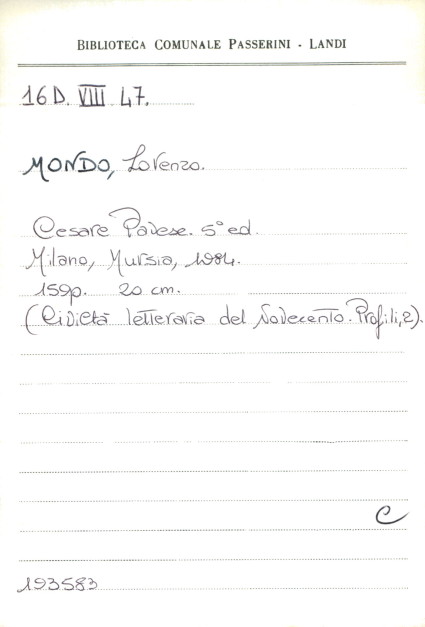 BIBLIOTECA COMUNALE PASSERINI - LANDI
16 D. VIII 47.
MONDO, Lorenzo.
Cesare Pavese. 5° ed.
Milano, Mursia, 1984.
159p. 20 cm.
(Civiltà letteraria del Novecento. Profili, 2).
C
193583